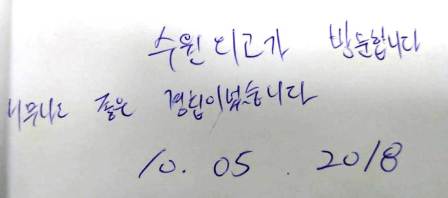 수원 방문합니다
너무나도 좋은 경험이었습니다
10. 05 . 2018